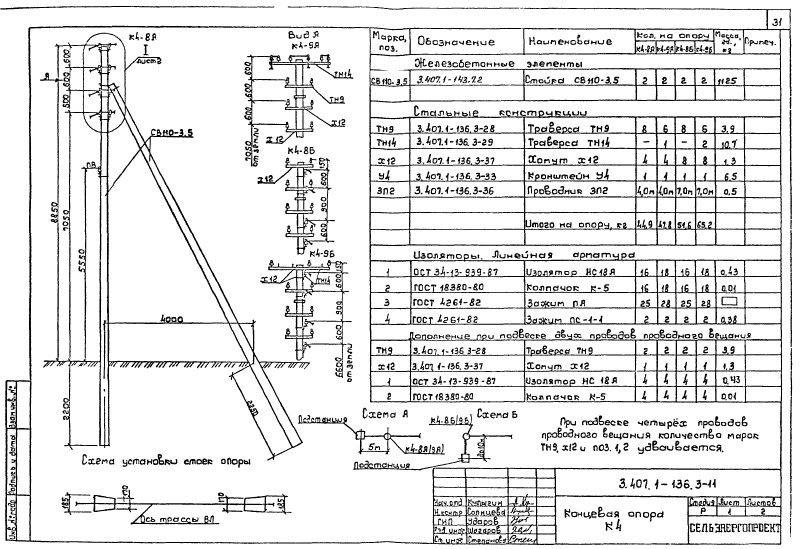 31
К4-8Я
I
Лист 2
Вид Я
К4-9Я
ТН14
ТН9
Х12
Х12
7050
от земли
К4-8Б
Х12
К4-9Б
Х12
ТН14
6600
от земли
СВ110-3,5
ПВ
Я
600
600
500
8850
7050
5550
4000
2200
2250
Марка, поз. Обозначение Наименование Кол. на опору Масса, ед., кг Примеч.
К4-8Я К4-9Я К4-8Б К4-9Б
Железобетонные элементы
СВ110-3,5 3.407.1-143.7.2 Стойка СВ110-3,5 2 2 2 2 1125
Стальные конструкции
ТН9 3.407.1-136.3-28 Траверса ТН9 8 6 8 6 3,9
ТН14 3.407.1-136.3-29 Траверса ТН14 – 1 – 2 10,7
Х12 3.407.1-136.3-37 Хомут Х12 4 4 8 8 1,3
У4 3.407.1-136.3-33 Кронштейн У4 1 1 1 1 6,5
ЗП2 3.407.1-136.3-36 Проводник ЗП2 4,0м 4,0м 7,0м 7,0м 0,5
Итого на опору, кг 44,9 47,8 51,6 65,2
Изоляторы. Линейная арматура
1 ОСТ 34-13-939-87 Изолятор НС18Я 16 18 16 18 0,43
2 ГОСТ 18380-80 Колпачок К-5 16 18 16 18 0,01
3 ГОСТ 4261-82 Зажим ПЯ 25 28 25 28
4 ГОСТ 4261-82 Зажим ПС-1-1 2 2 2 2 0,38
Дополнение при подвеске двух проводов проводного вещания
ТН9 3.407.1-136.3-28 Траверса ТН9 2 2 2 2 3,9
Х12 3.407.1-136.3-37 Хомут Х12 1 1 1 1 1,3
1 ОСТ 34-13-939-87 Изолятор НС18Я 4 4 4 4 0,43
2 ГОСТ 18380-80 Колпачок К-5 4 4 4 4 0,01
Схема Я
Подстанция
5м
К4-8Я(9Я)
Схема Б
К4-8Б(9Б)
до 10м
Подстанция
При подвеске четырёх проводов
проводного вещания количество марок
ТН9, Х12 и поз. 1,2 удваивается.
Схема установки стоек опоры
185
170
170
185
Ось трассы ВЛ
3.407.1-136.3-11
Нач. отд. Кулыгин
Н.контр. Солнцева
ГИП Ударов
Ст. инж. Степанова
Концевая опора
К4
Стадия Лист Листов
Р 1 2
СЕЛЬЭНЕРГОПРОЕКТ
Инв.№подл. Подпись и дата Взам.инв.№